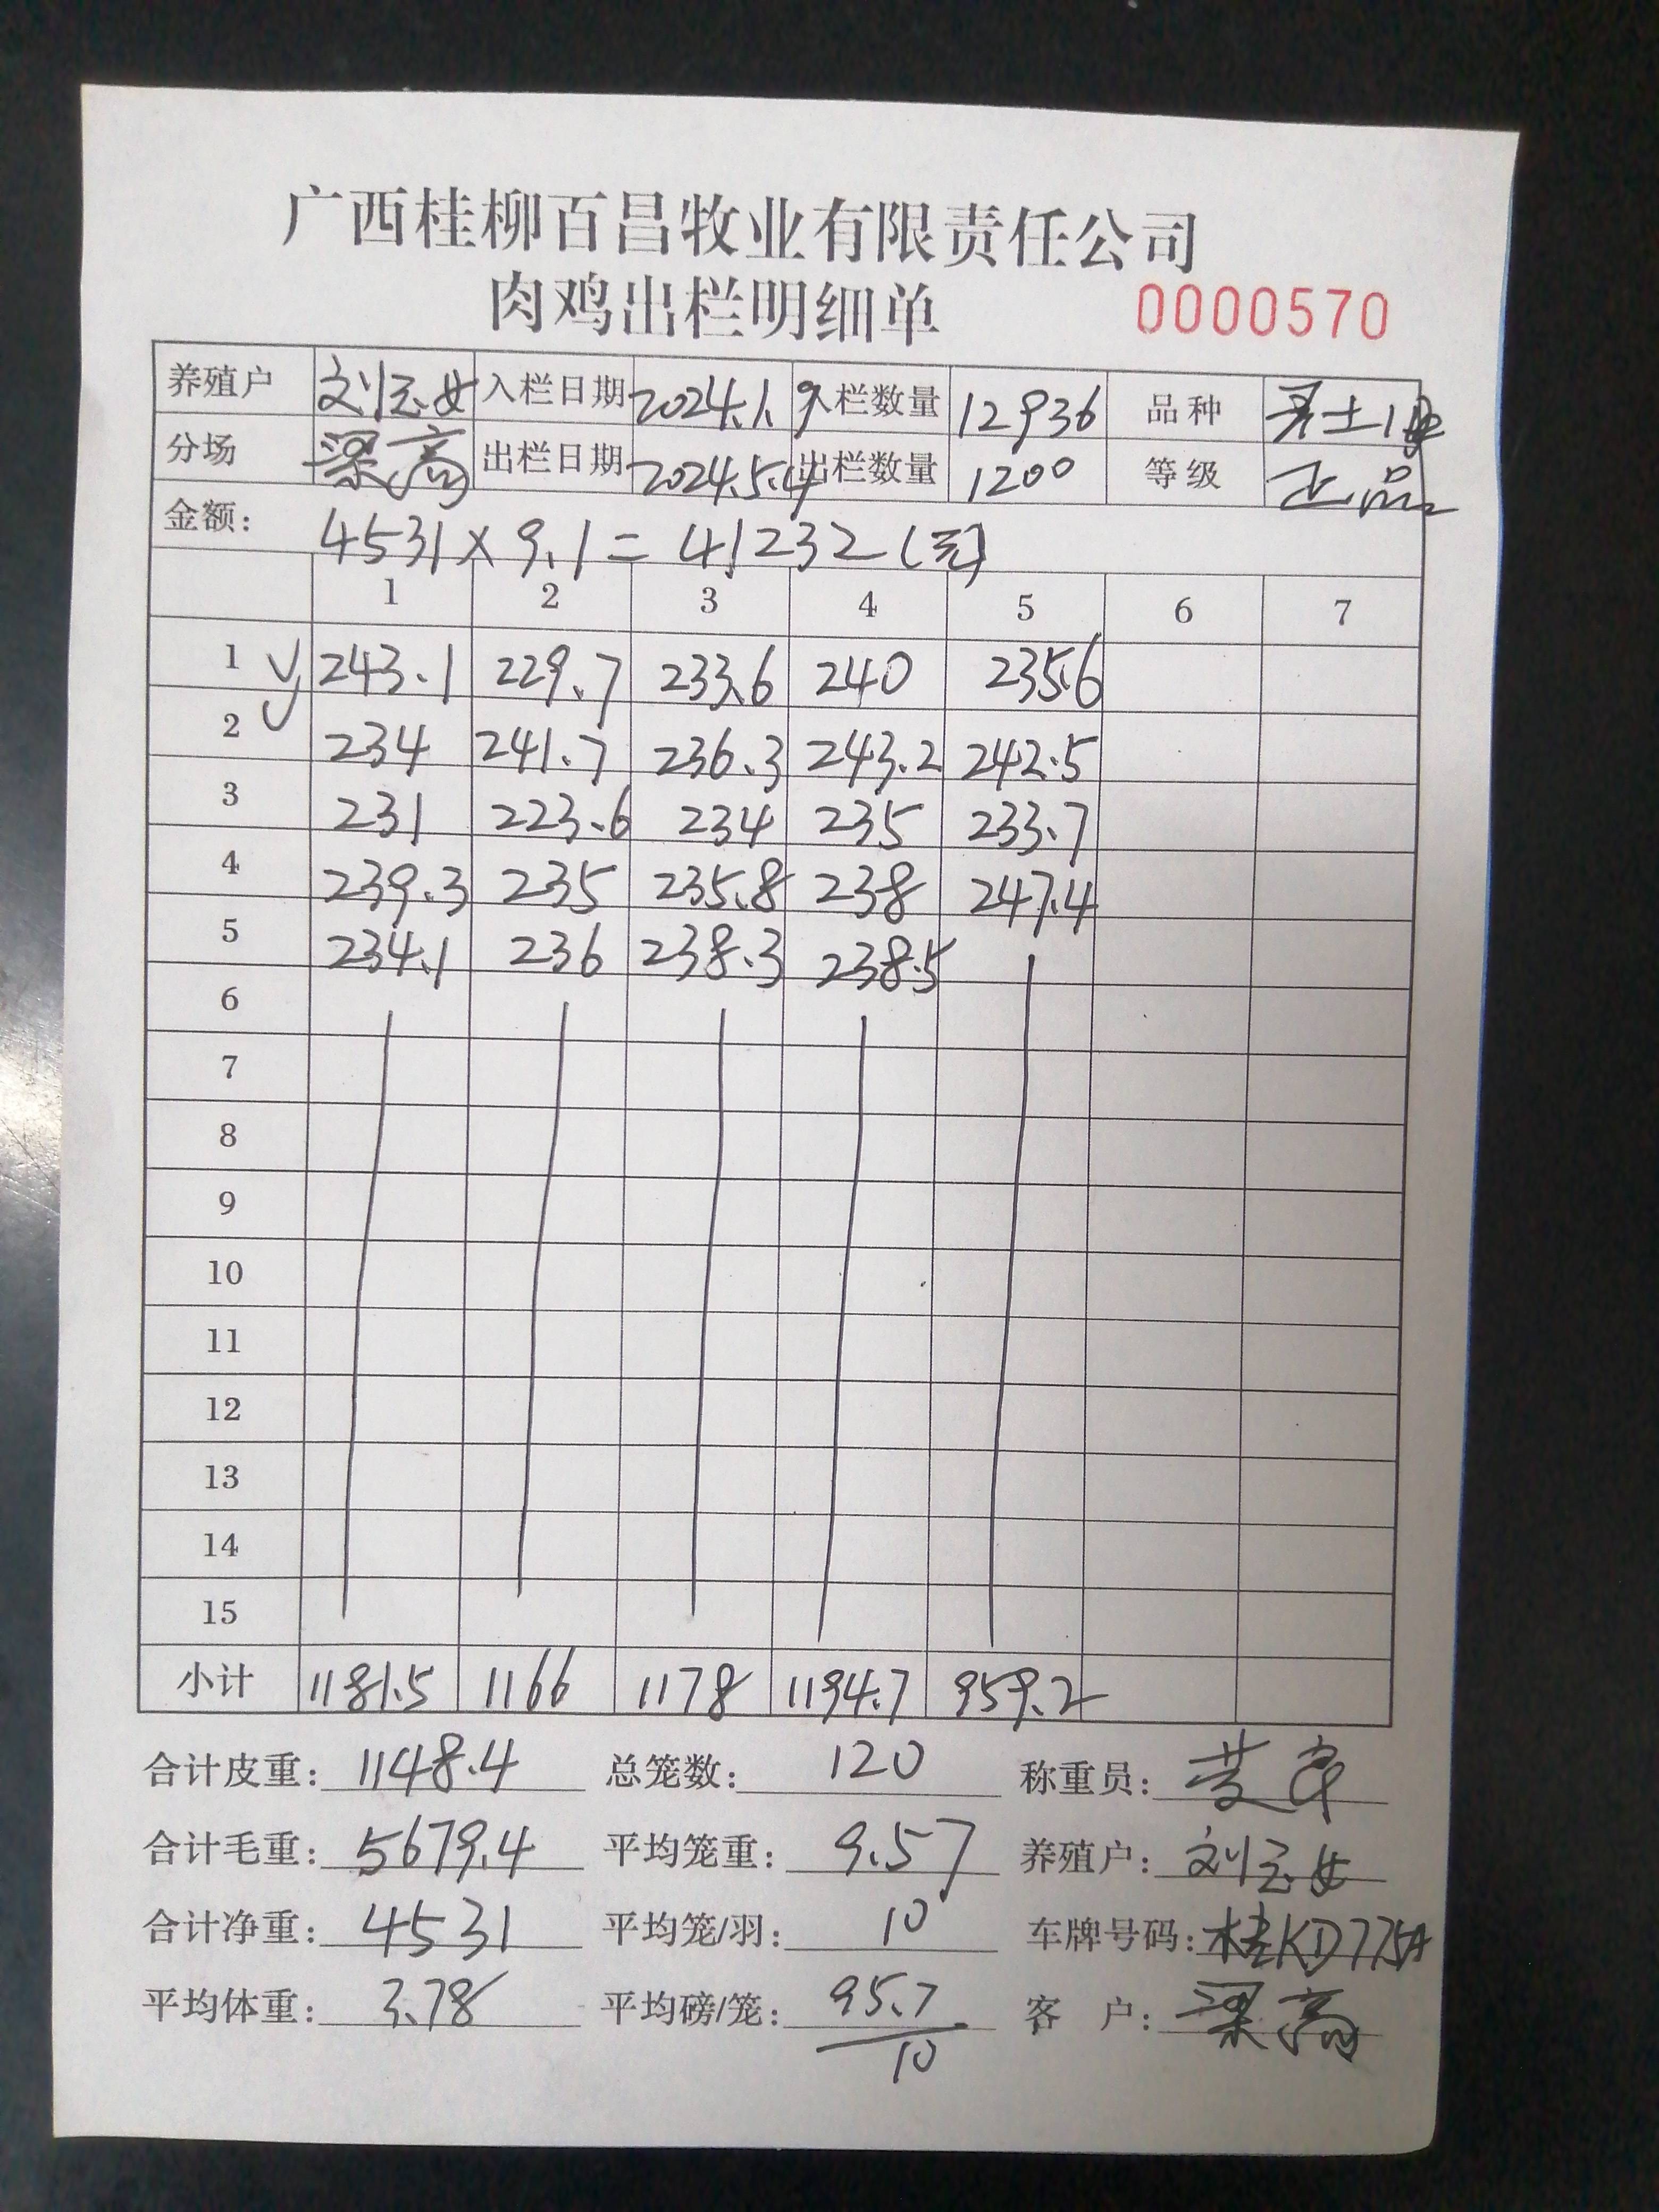 广西桂柳百昌牧业有限责任公司
肉鸡出栏明细单 0000570
养殖户 刘玉女 入栏日期 2024.1.9 入栏数量 12936 品种
分场 梁高 出栏日期 2024.5.4 出栏数量 1200 等级 正品
金额: 4531×9.1=41232(元)
1 2 3 4 5 6 7
1 243.1 229.7 233.6 240 235.6
2 234 241.7 236.3 243.2 242.5
3 231 223.6 234 235 233.7
4 239.3 235 235.8 238 247.4
5 234.1 236 238.3 238.5
6
7
8
9
10
11
12
13
14
15
小计 1181.5 1166 1178 1194.7 959.2
合计皮重: 1148.4 总笼数: 120 称重员:
合计毛重: 5679.4 平均笼重: 9.57 养殖户: 刘玉女
合计净重: 4531 平均笼/羽: 10 车牌号码: 桂KD775A
平均体重: 3.78 平均磅/笼: 95.7/10 客 户: 梁高